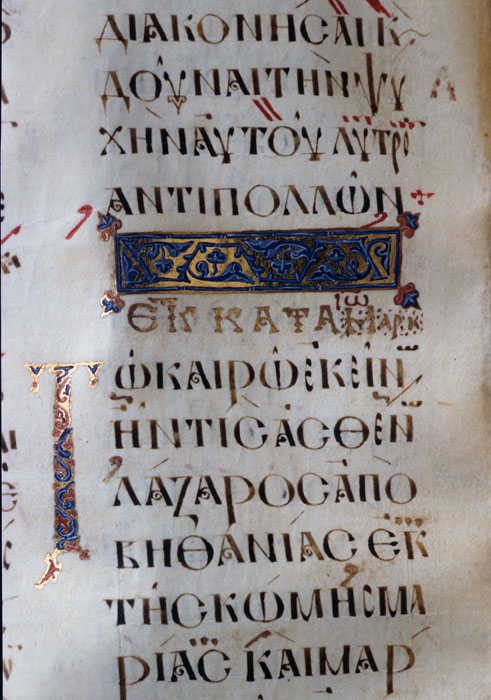 ΔΙΑΚΟΝΗΣΑΙ Κ
ΔΟΥΝΑΙ ΤΗΝ ΨΥ
ΧΗΝ ΑΥΤΟΥ ΛΥΤΡΟ
ΑΝΤΙ ΠΟΛΛΩΝ
ΕΚ ΚΑΤΑ ΙΩ ΜΑΡΚ
ΤΩ ΚΑΙΡΩ ΕΚΕΙΝ
ΗΝ ΤΙΣ ΑΣΘΕΝ
ΛΑΖΑΡΟΣ ΑΠΟ
ΒΗΘΑΝΙΑΣ ΕΚ
ΤΗΣ ΚΩΜΗΣ ΜΑ
ΡΙΑΣ ΚΑΙ ΜΑΡ